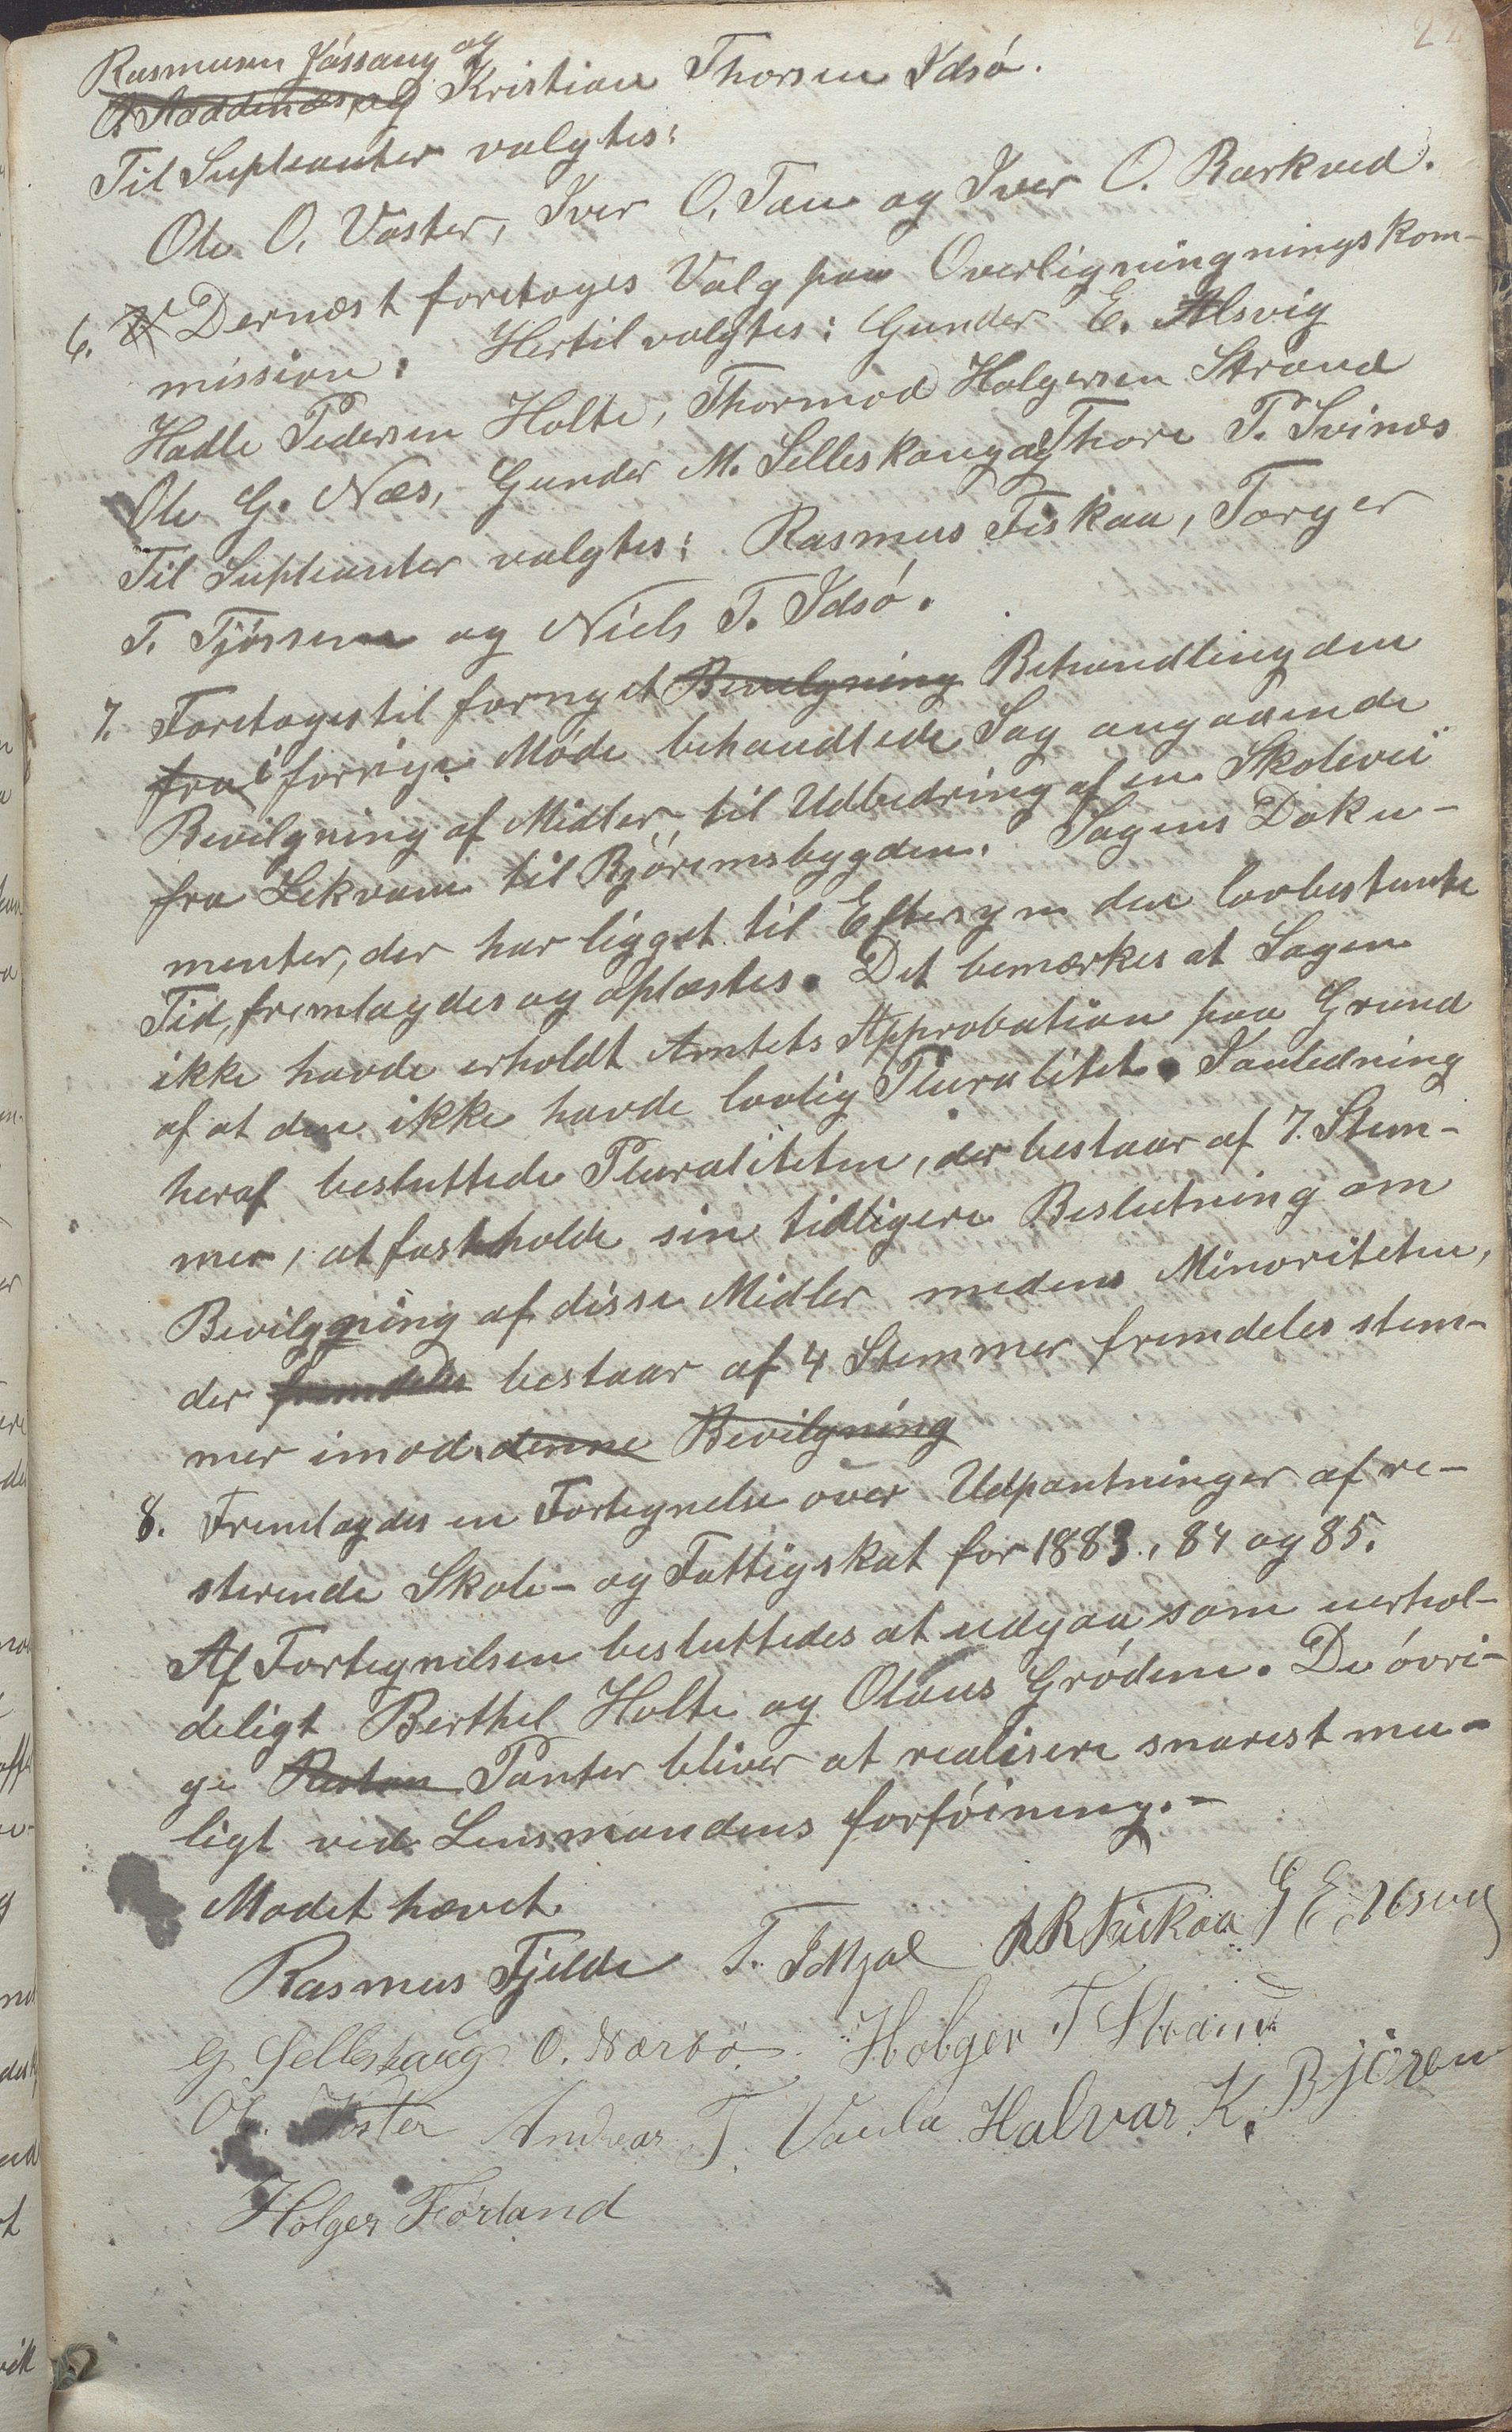 22
Rasmusen Jössang og
Kristian Thorsen Idsö.
Til Supleanter valgtes:
Ole O. Voster, Iver O. Tau og Iver O. Barkved.
6. Dernæst foretoges Valg paa Overligningningskom-
mission. Hertil valgtes: Gunder E. Alsvig
Hadle Pedersen Holte, Thormod Holgersen Strand
Ole G. Næs, Gunder M. Selleskaug og Thore P. Svinæs
Til Supleanter valgtes: Rasmus Fiskaa, Torger
T. Tjössem og Niels T. Idsö.
7. Foretoges til fornyet Bevilgning Behandling den
fra i forrige Möde behandlede Sag angaaende
Bevilgning af Midler til Udbedring af en Skolevei
fra Lekvam til Björemsbygden. Sagens Doku-
menter, der har ligget til Eftersyn den lovbestemte
Tid, fremlagdes og oplæstes. Det bemærkes at Sagen
ikke havde erholdt Amtets Approbation paa Grund
af at den ikke havde lovlig Pluralitet. I anledning
heraf besluttede Pluraliteten, der bestaar af 7. Stem-
mer, at fastholde sin tidligere Beslutning om
Bevilgning af disse Midler medens Minoriteten,
der fremdeles bestaar af 4 Stemmer fremdeles stem-
mer imod. denne Bevilgning
8. Fremlagdes en Fortegnelse over Udpantninger af re-
sterende Skole- og Fattigskat for 1883, 84 og 85.
Af Fortegnelsen besluttedes at udgaa som uerhol-
deligt Berthel Holte og Olaus Grödem. De övri-
ge Resten Panter bliver at realisere snarest mu-
ligt ved Lensmandens forföining.-
Mödet hævet.
Rasmus Fjelde T. Idsal R R Fiskaa G E Alsvig
G Selleskaug O. Norbö Holger T Strand
O. Voster Andreas T. Vaula Halvar K. Björen
Holger Förland